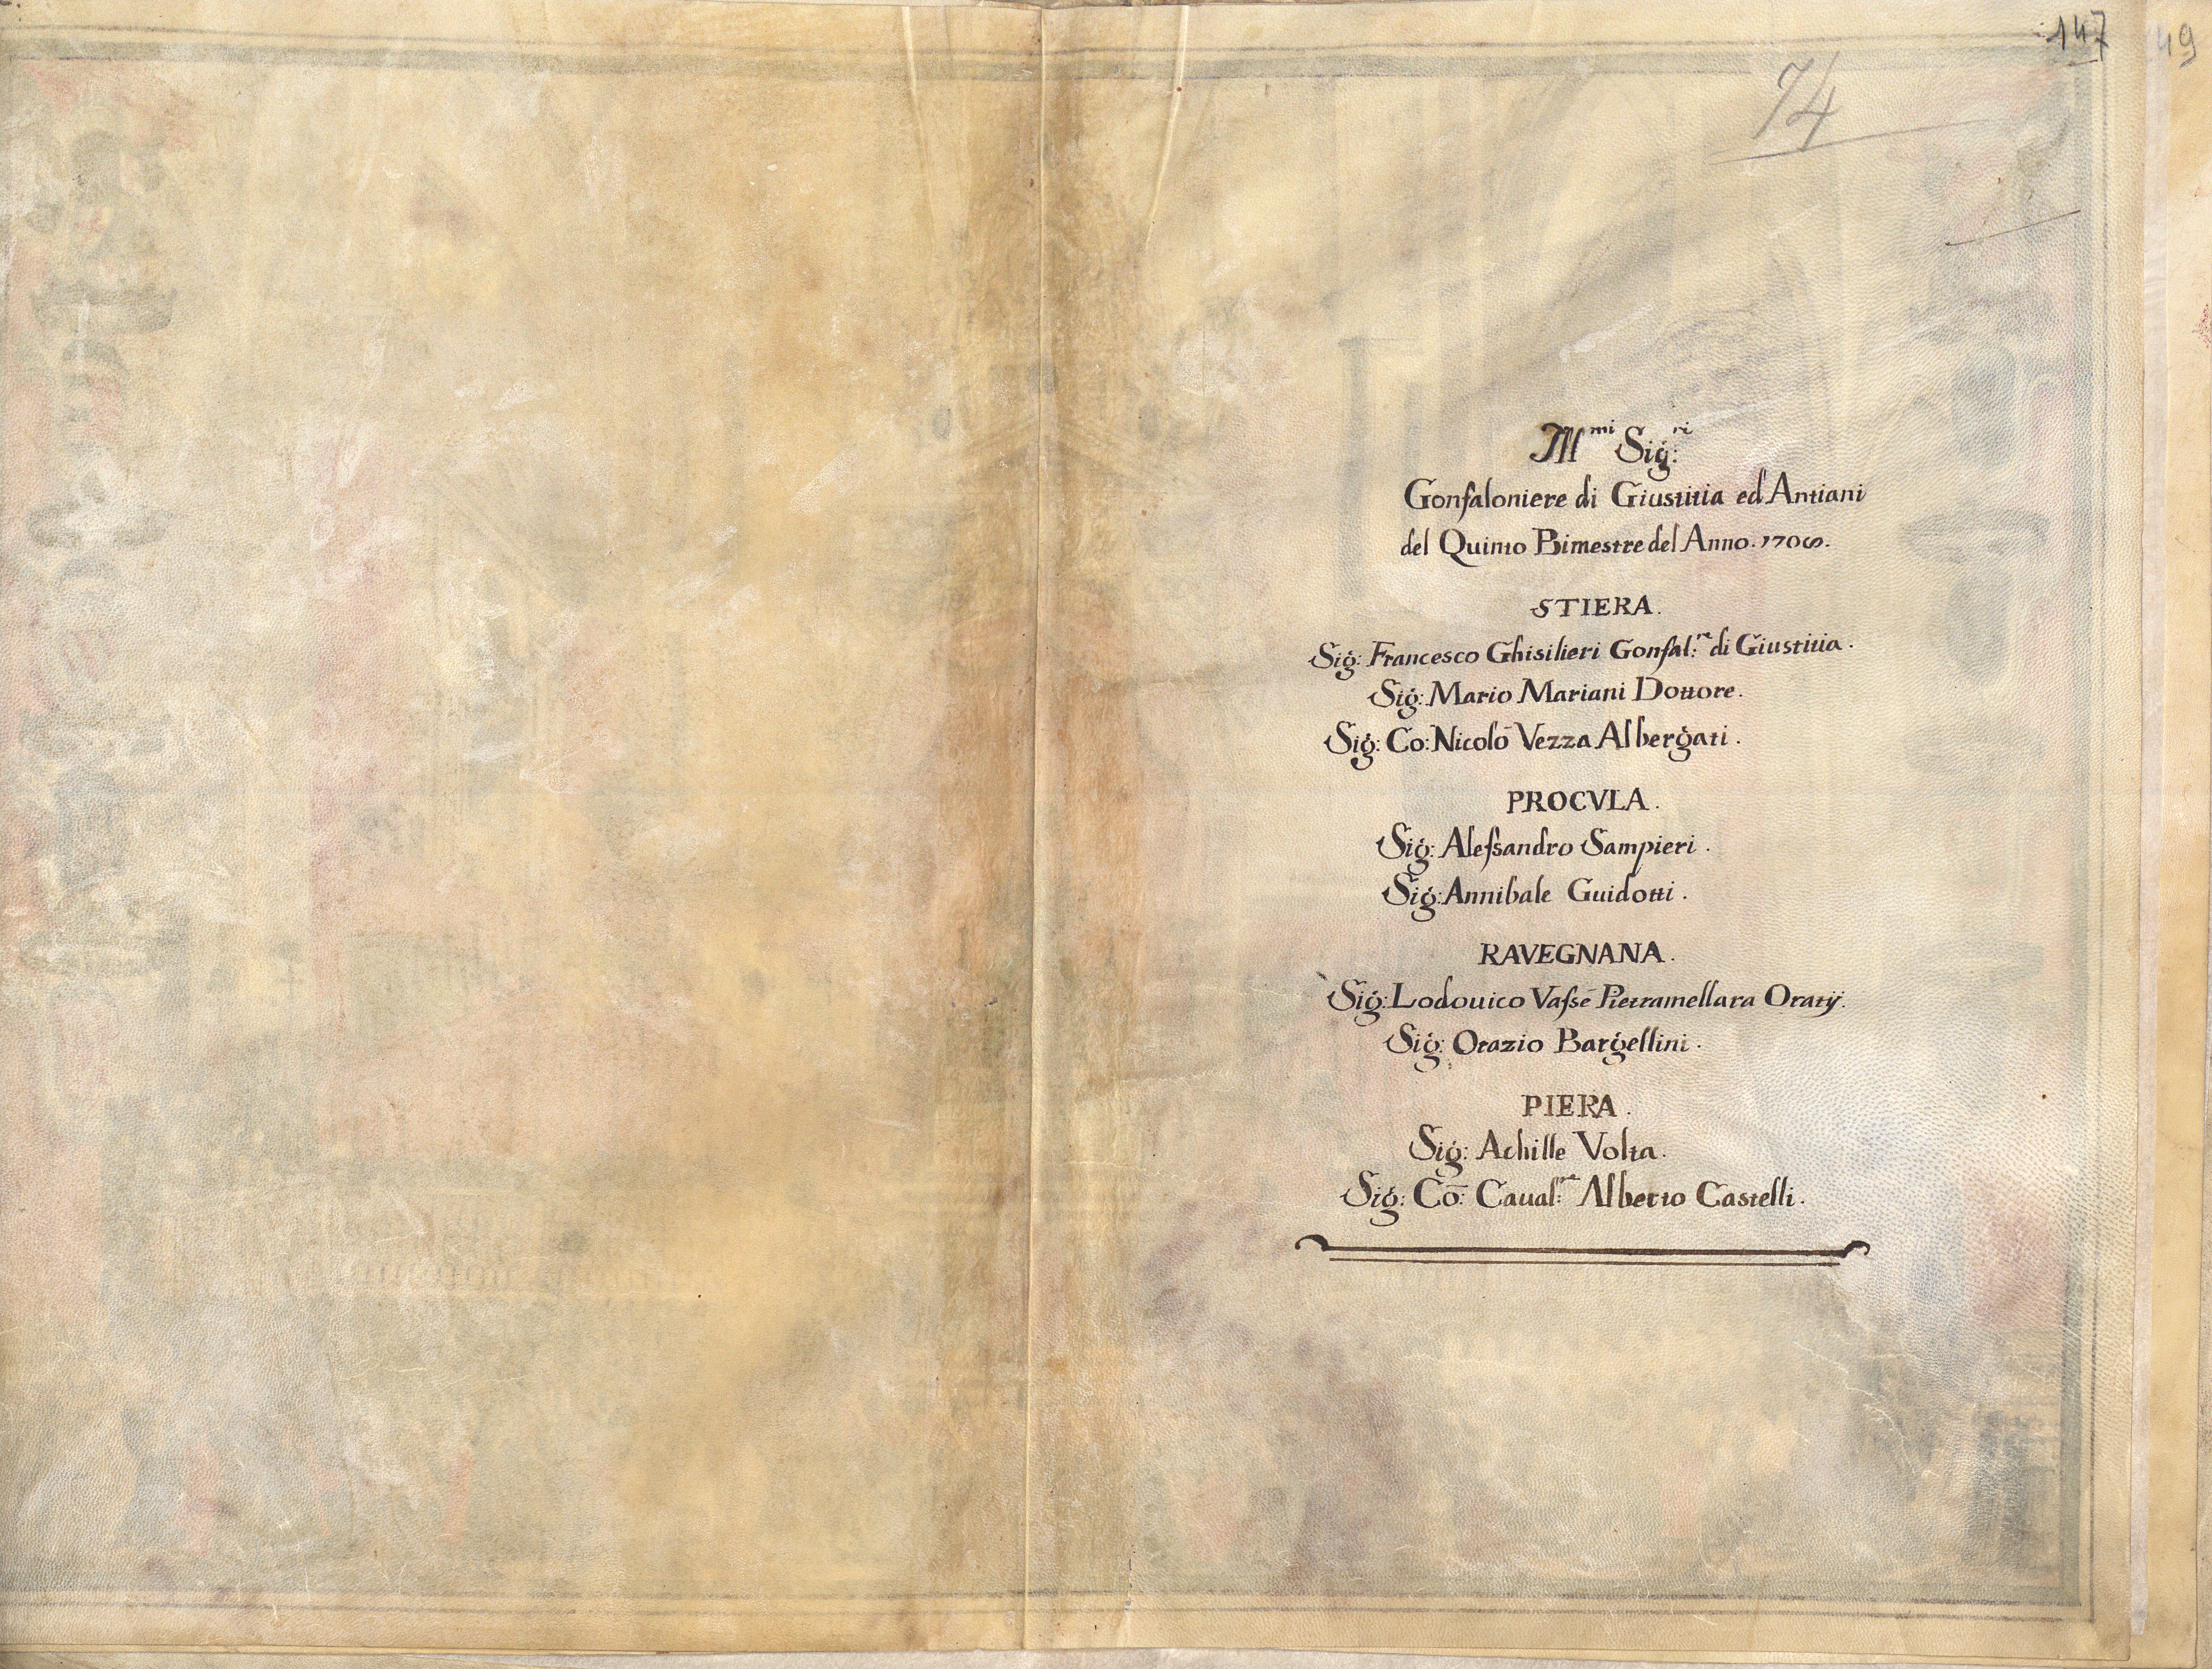 147
49
74
Ill.mi Sig.ri
Gonfaloniere di Giustitia ed Antiani
del Quinto Bimestre del Anno. 1706.
STIERA.
Sig: Francesco Ghisilieri Gonfal:re di Giustitia.
Sig: Mario Mariani Dottore.
Sig: Co: Nicolò Vezza Albergati.
PROCVLA.
Sig: Aleſsandro Sampieri.
Sig: Annibale Guidotti.
RAVEGNANA.
Sig: Lodouico Vaſsè Pietramellara Oratij.
Sig: Orazio Bargellini.
PIERA.
Sig: Achille Volta.
Sig: Co: Caual:re Alberto Castelli.